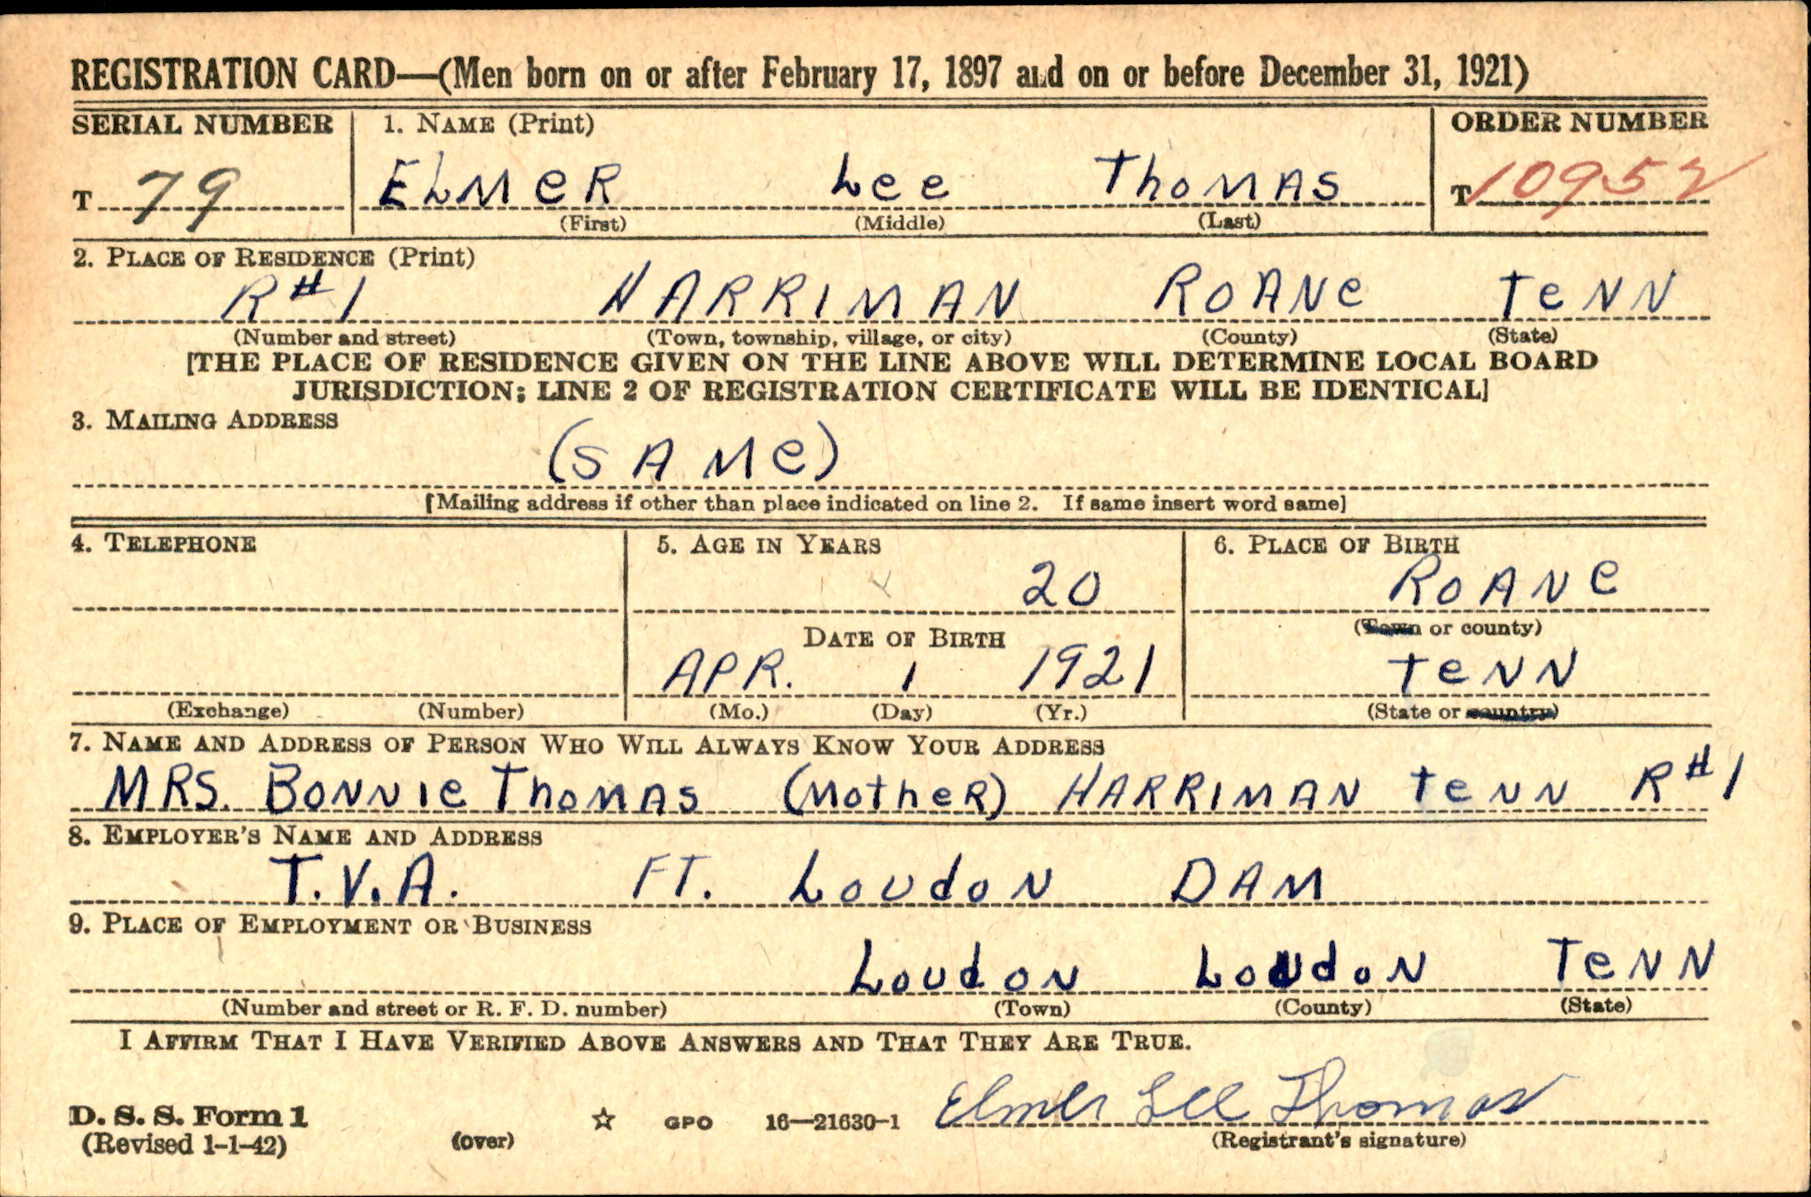 REGISTRATION CARD—(Men born on or after February 17, 1897 and on or before December 31, 1921)
SERIAL NUMBER 1. NAME (Print) ORDER NUMBER
T 79 ELMeR Lee ThoMAS T 10952
(First) (Middle) (Last)
2. PLACE OF RESIDENCE (Print)
R#1 HARRIMAN ROANe TeNN
(Number and street) (Town, township, village, or city) (County) (State)
[THE PLACE OF RESIDENCE GIVEN ON THE LINE ABOVE WILL DETERMINE LOCAL BOARD
JURISDICTION; LINE 2 OF REGISTRATION CERTIFICATE WILL BE IDENTICAL]
3. MAILING ADDRESS
(SAMe)
[Mailing address if other than place indicated on line 2. If same insert word same]
4. TELEPHONE 5. AGE IN YEARS 6. PLACE OF BIRTH
20 ROANe
(Town or county)
DATE OF BIRTH
APR. 1 1921 TeNN
(Exchange) (Number) (Mo.) (Day) (Yr.) (State or country)
7. NAME AND ADDRESS OF PERSON WHO WILL ALWAYS KNOW YOUR ADDRESS
MRS. BONNIe ThoMAS (MotheR) HARRIMAN TeNN R#1
8. EMPLOYER'S NAME AND ADDRESS
T.V.A. FT. LoudoN DAM
9. PLACE OF EMPLOYMENT OR BUSINESS
LoudoN LoudoN TeNN
(Number and street or R. F. D. number) (Town) (County) (State)
I AFFIRM THAT I HAVE VERIFIED ABOVE ANSWERS AND THAT THEY ARE TRUE.
D. S. S. Form 1 Elmer Lee Thomas
(Revised 1-1-42) (over) ☆ GPO 16—21630-1 (Registrant's signature)